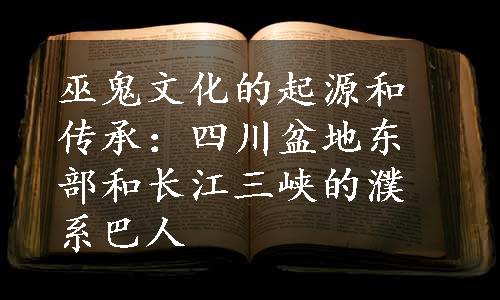 巫鬼文化的起源和
传承：四川盆地东
部和长江三峡的濮
系巴人